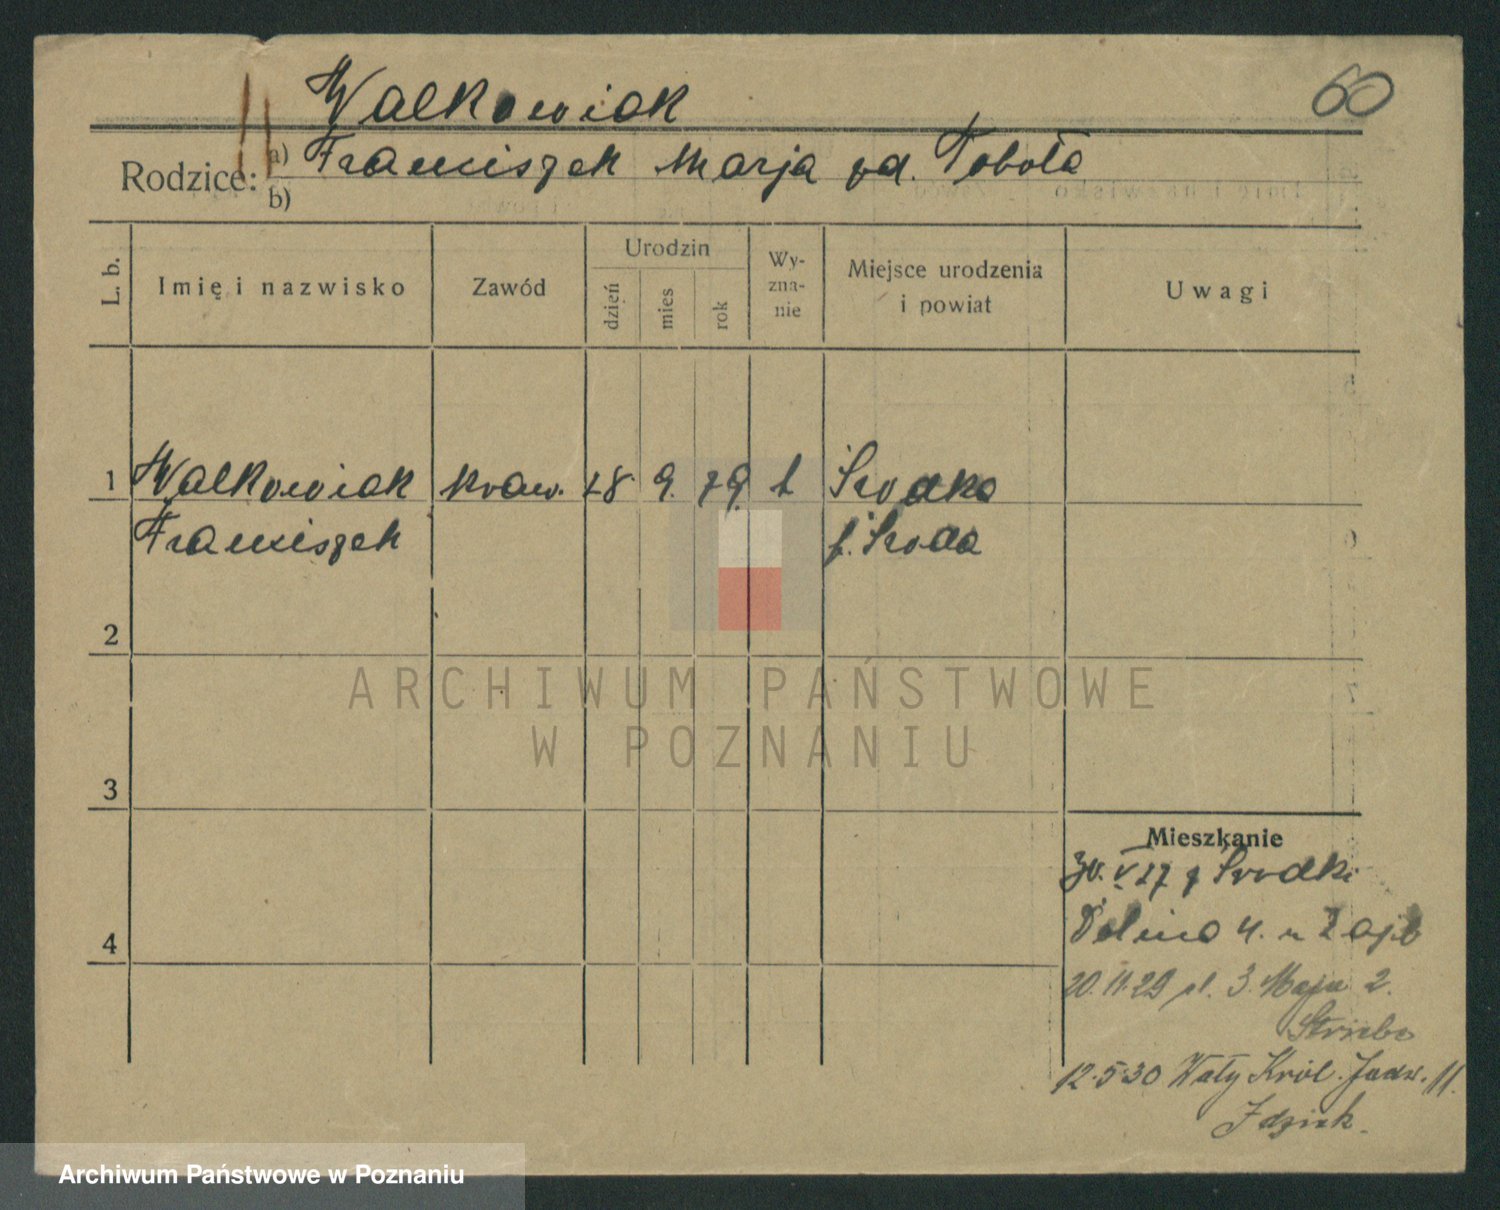 60
Walkowiak
Rodzice: a) Franciszek Marja zd. Tobola
b)
L. b. Imię i nazwisko Zawód Urodzin dzień mies rok Wy- zna- nie Miejsce urodzenia i powiat Uwagi
1 Walkowiak kraw. 28 9. 79 k Srodka
Franciszek p. Sroda
2
ARCHIWUM PAŃSTWOWE
W POZNANIU
3
Mieszkanie
30. V 27 z Srodki
4 4.
20.11.29 pl. 3. Maja 2.
12.5.30 Wały Król. Jadw. 11.
Idziak.
Archiwum Państwowe w Poznaniu